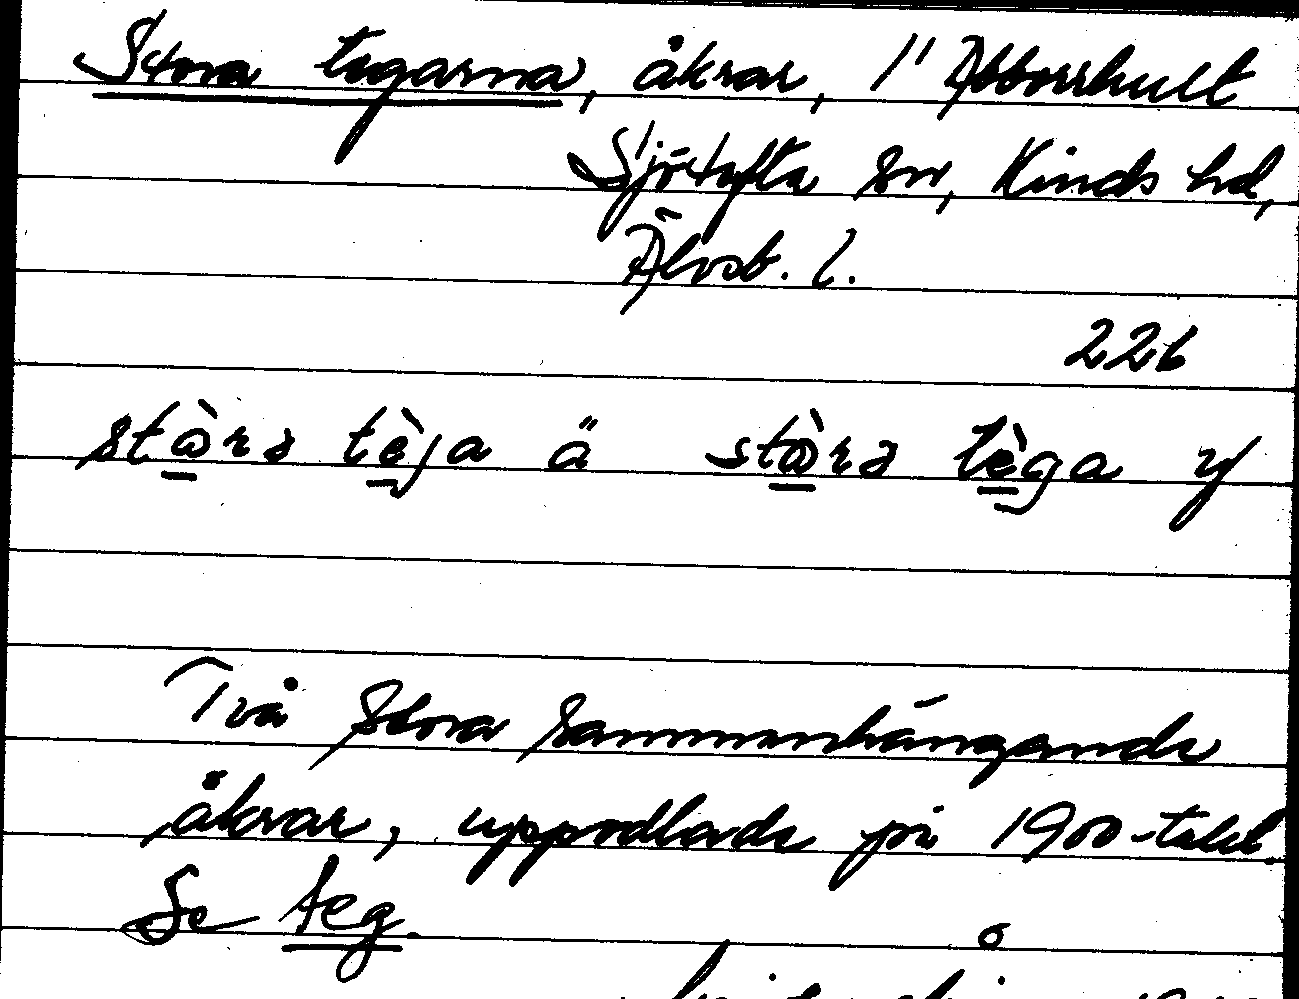 Stora tegarna, åkrar, 1" Abborrhult
Sjötofta sn, Kinds hd,
Älvsb. l.
226
stòrə tèja ä stòrə tèga y
Två stora sammanhängande
åkrar, uppodlade på 1900-talet.
Se teg.